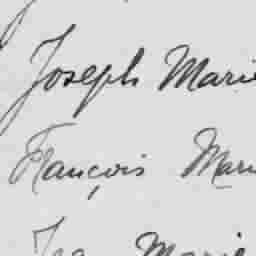 Joseph Marie
François Mari
Marie